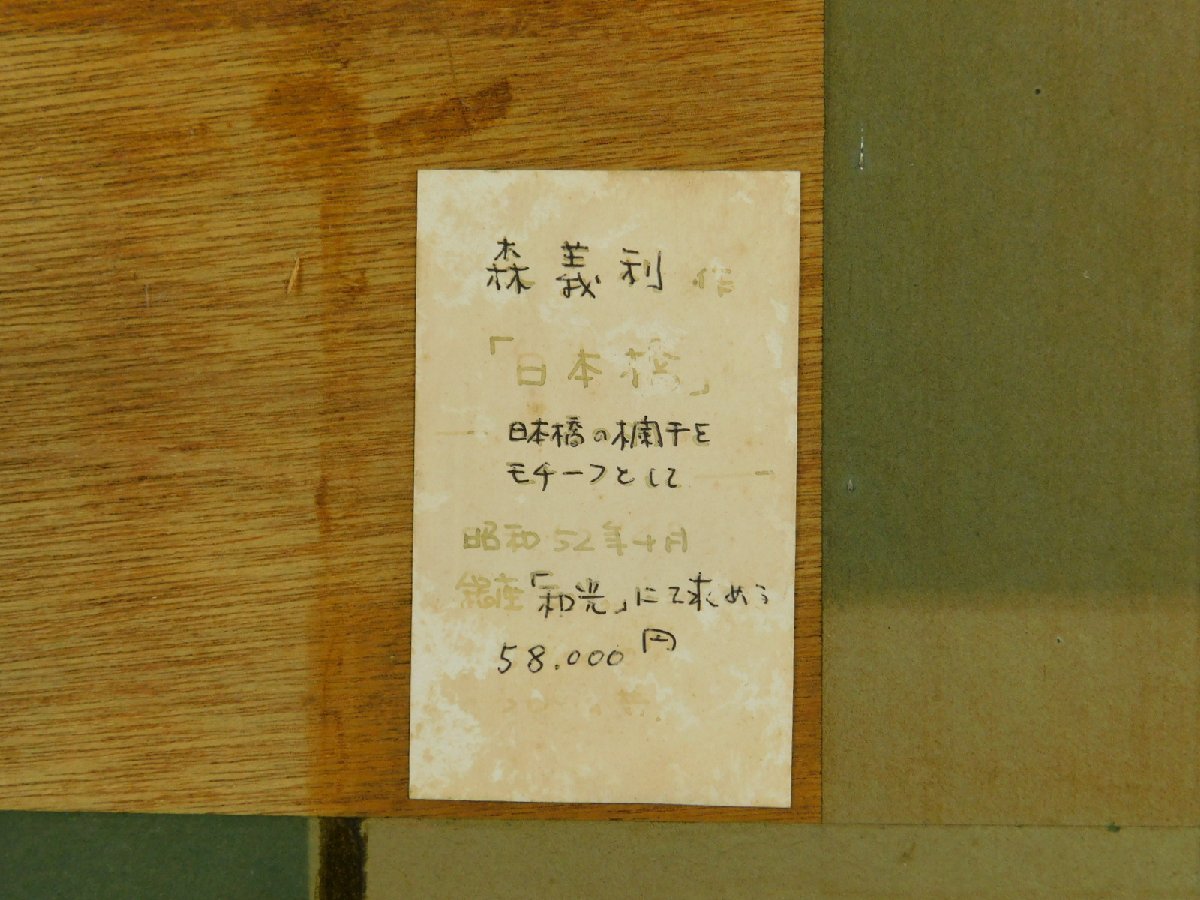 森義利 作
「日本橋」
日本橋の欄干を
モチーフとして
昭和52年十月
銀座「和光」にて求める
58.000円